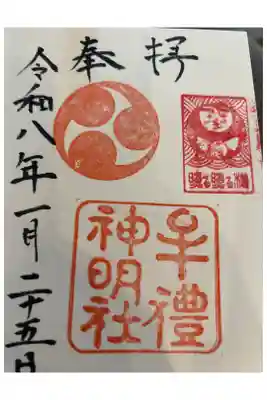 奉拝
牟禮
神明社
令和八年一月二十五日